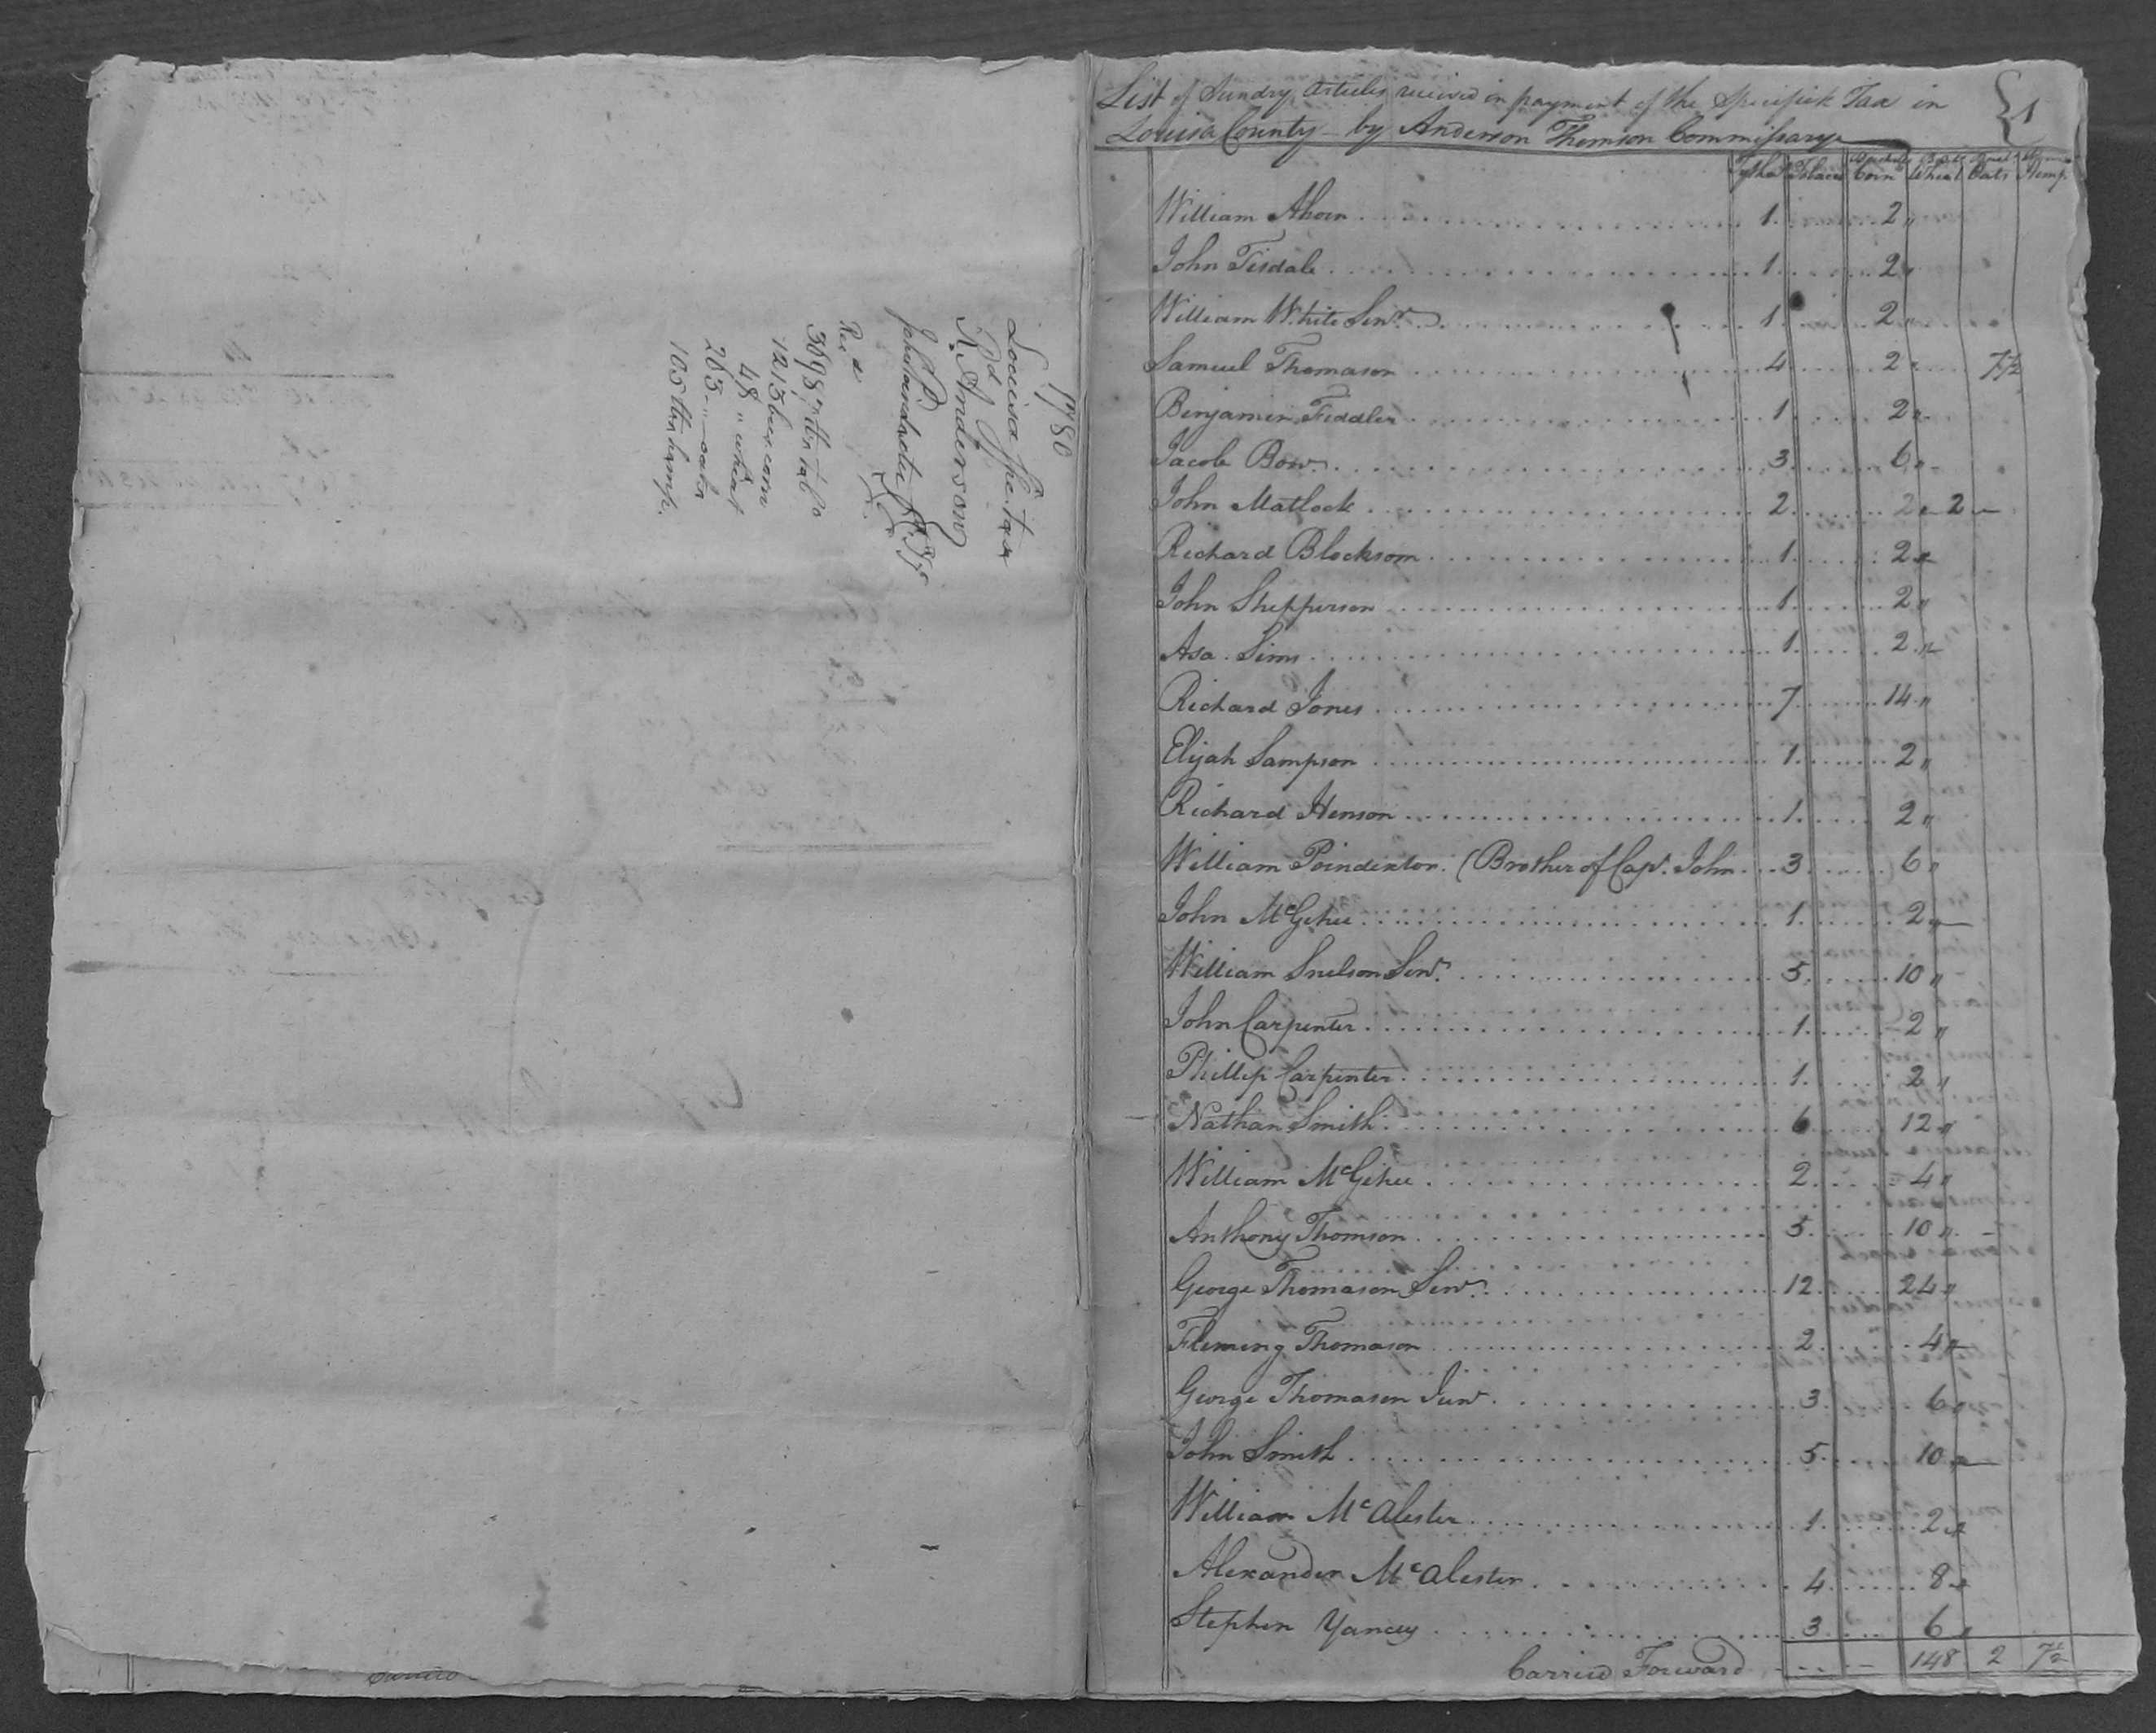 1780
Louisa Spe. tax
Rd. Anderson
John Poindexter
Recd
3098 " lbs tabo
1215 bus. corn
48 " wheat
265 - " - oats
105 lbs hemp.
List of Sundry Articles received in payment of the Specifick Tax in {1
Louisa County - by Anderson Thomson Commissary
Tythes Tobacco Bushels Corn Wheat Oats Hemp
William Ahorn 1 2 "
John Tisdale 1 2 "
William White Senr. 1 2 "
Samuel Thomason 4 2 " 7½
Benjamin Fiddler 1 2 "
Jacob Bow 3 6 "
John Matlock 2 2 " 2
Richard Blocksom 1 2 "
John Shepperson 1 2 "
Asa Sims 1 2 "
Richard Jones 7 14 "
Elijah Sampson 1 2 "
Richard Henson 1 2 "
William Poindexter (Brother of Capt. John 3 6 "
John McGehee 1 2 "
William Snelson Senr. 5 10 "
John Carpenter 1 2 "
Phillip Carpenter 1 2 "
Nathan Smith 6 12 "
William McGehee 2 4 "
Anthony Thomson 5 10 "
George Thomason Senr. 12 24 "
Fleming Thomason 2 4 "
George Thomason Junr. 3 6 "
John Smith 5 10 "
William McAlester 1 2 "
Alexander McAlester 4 8 "
Stephen Yancey 3 6 "
Carried Forward 148 2 7½